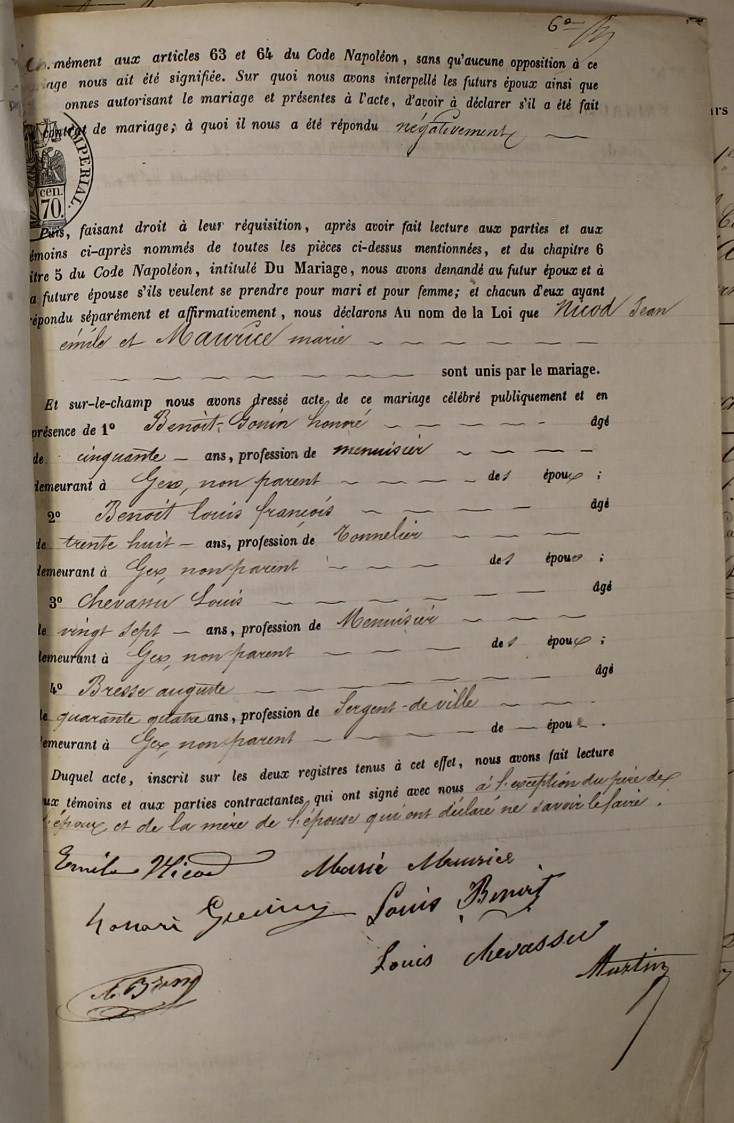 6e
mément aux articles 63 et 64 du Code Napoléon, sans qu'aucune opposition à ce
iage nous ait été signifiée. Sur quoi nous avons interpellé les futurs époux ainsi que
onnes autorisant le mariage et présentes à l'acte, d'avoir à déclarer s'il a été fait
contrat de mariage; à quoi il nous a été répondu négativement
IMPERIAL.
cen.
70.
Puis, faisant droit à leur réquisition, après avoir fait lecture aux parties et aux
émoins ci-après nommés de toutes les pièces ci-dessus mentionnées, et du chapitre 6
itre 5 du Code Napoléon, intitulé Du Mariage, nous avons demandé au futur époux et à
a future épouse s'ils veulent se prendre pour mari et pour femme; et chacun d'eux ayant
répondu séparément et affirmativement, nous déclarons Au nom de la Loi que Nicod Jean
émile et Maurice marie
sont unis par le mariage.
Et sur-le-champ nous avons dressé acte de ce mariage célébré publiquement et en
présence de 1º Benoit-Gonin honoré âgé
de cinquante ans, profession de menuisier
demeurant à Gex, non parent des époux ;
2º Benoit louis françois âgé
de trente huit ans, profession de Tonnelier
demeurant à Gex, non parent des époux ;
3º Chevassu Louis âgé
de vingt sept ans, profession de Menuisier
demeurant à Gex, non parent des époux ;
4º Bresse auguste âgé
de quarante quatre ans, profession de Sergent-de ville
demeurant à Gex, non parent de époux .
Duquel acte, inscrit sur les deux registres tenus à cet effet, nous avons fait lecture
ux témoins et aux parties contractantes qui ont signé avec nous à l'exception du père de
l'époux et de la mère de l'épouse qui ont déclaré ne savoir le faire.
Emile Nicod Marie Maurice
honoré Louis Benoit
Louis chevassu
Martin